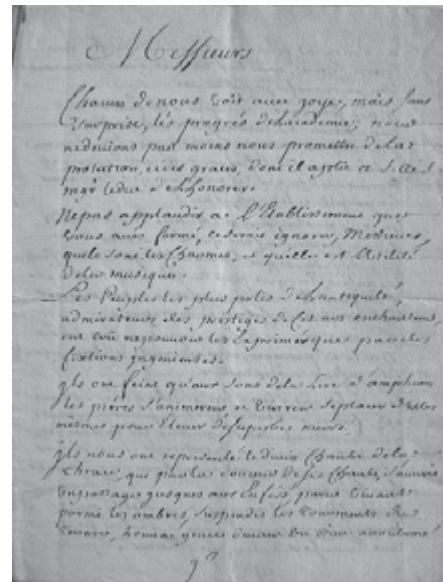 Messieurs
Chacun de nous voit avec joye, mais sans
surprise, les progrès de l'académie; nous
ne devions pas moins nous promettre de la
protection, et des graces, dont il a plu a S. A. S.
mgr le duc de l'honorer.
Ne pas applaudir a l'Etablissement que
vous avés formé, ce serait ignorer, Messieurs,
quels sont les Charmes, et quelle est l'utilité
de la musique.
Les Peuples les plus polis de l'antiquité,
admirateurs des prestiges de cet art enchanteur,
ont cru ne pouvoir les Exprimer que par des
fictions ingenieuses.
Ils ont feint qu'aux sons de la Lire d'amphion
les pierres s'animerent et vinrent se placer d'elles
mesmes pour Elever de superbes murs.
Ils nous ont representé le divin Chantre de la
Thrace, qui par la douceur de ses Chants, s'ouvrit
un passage jusques aux Enfers, parut vivant
parmi les ombres, suspendit les tourments du
Tenare,